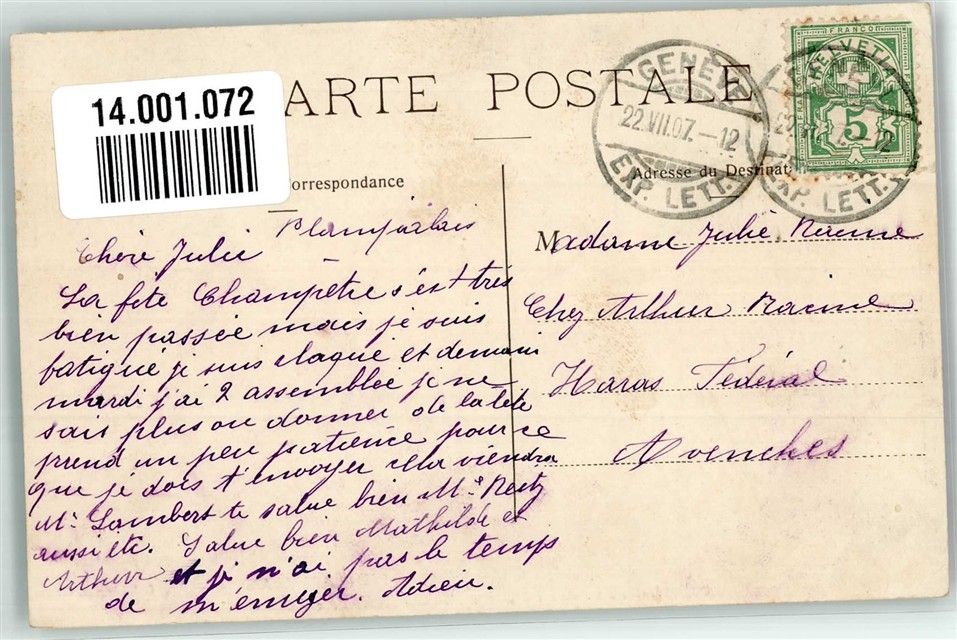 14.001.072
ARTE POSTALE
orrespondance
Adresse du Destinat
GENÈVE
22.VII.07.–12
EXP. LETT.
FRANCO
HELVETIA
5
12
EXP. LETT.
Plainpalais
Chère Julie
La fete Champêtre s'est très
bien passée mais je suis
fatigué je suis claqué et demain
mardi j'ai 2 assemblée je ne
sais plus ou donner de la tête
prend un peu patience pour ce
que je dois t'envoyer cela viendra
Mr Lambert te salue bien Me
aussi etc. Salue bien Mathilde et
Arthur et je n'ai pas le temps
de m'enuyer. Adieu.
Madame Julie Racine
Chez Arthur Racine
Haras Fédéral
Avenches